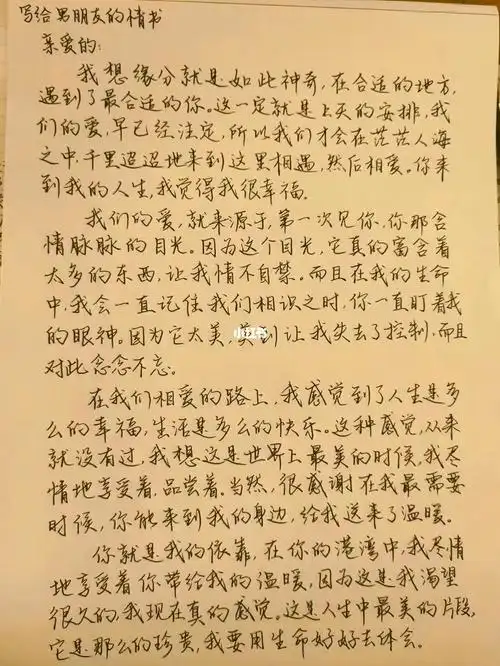 写给男朋友的情书
亲爱的:
我想缘分就是如此神奇,在合适的地方,
遇到了最合适的你。这一定就是上天的安排,我
们的爱,早已经注定,所以我们才会在茫茫人海
之中,千里迢迢地来到这里相遇,然后相爱。你来
到我的人生,我觉得我很幸福.
我们的爱,就来源于,第一次见你,你那含
情脉脉的目光。因为这个目光,它真的富含着
太多的东西,让我情不自禁。而且在我的生命
中,我会一直记住我们相识之时,你一直盯着我
的眼神。因为它太美,美到让我失去了控制,而且
对此念念不忘。
在我们相爱的路上,我感觉到了人生是多
么的幸福,生活是多么的快乐。这种感觉,从来
就没有过,我想这是世界上最美的时候,我尽
情地享受着,品尝着。当然,很感谢在我最需要
时候,你能来到我的身边,给我送来了温暖。
你就是我的依靠,在你的港湾中,我尽情
地享受着你带给我的温暖,因为这是我渴望
很久的,我现在真的感觉。这是人生中最美的片段,
它是那么的珍贵,我要用生命好好去体会。
小红书